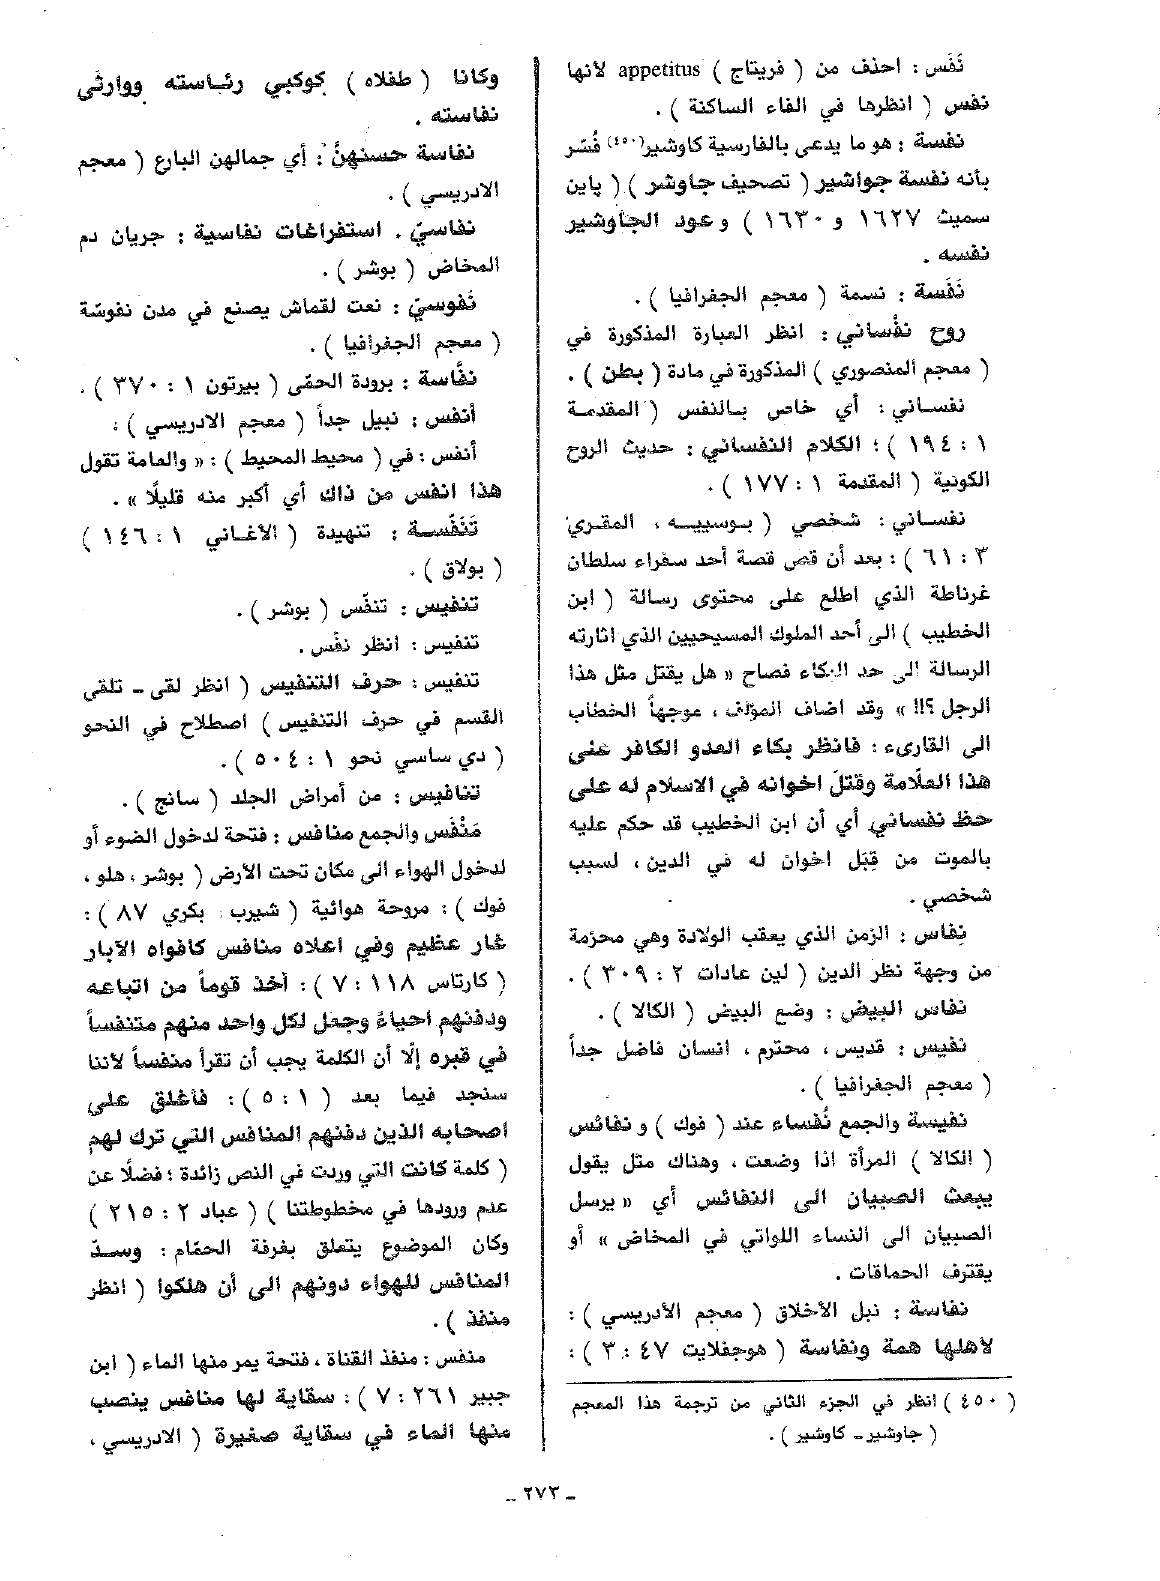 نَفَس : احذف من ( فريتاج ) appetitus لأنها
نفس ( انظرها في الفاء الساكنة ) .
نفسة : هو ما يدعى بالفارسية كاوشير(٤٥٠) فُسّر
بأنه نفسة جواشير ( تصحيف جاوشر ) ( پاين
سميث ١٦٢٧ و ١٦٣٠ ) و عود الجاوشير
نفسه .
نَفَسة : نسمة ( معجم الجغرافيا ) .
روح نفْساني : انظر العبارة المذكورة في
( معجم المنصوري ) المذكورة في مادة ( بطن ) .
نفساني : أي خاص بالنفس ( المقدمة
١ : ١٩٤ ) ؛ الكلام النفساني : حديث الروح
الكونية ( المقدمة ١ : ١٧٧ ) .
نفساني : شخصي ( بوسييه ، المقري
٣ : ٦١ ) : بعد أن قص قصة أحد سفراء سلطان
غرناطة الذي اطلع على محتوى رسالة ( ابن
الخطيب ) الى أحد الملوك المسيحيين الذي اثارته
الرسالة الى حد البكاء فصاح « هل يقتل مثل هذا
الرجل ؟!! » وقد اضاف المؤلف ، موجهاً الخطاب
الى القارىء : فانظر بكاء العدو الكافر على
هذا العلّامة وقتلَ اخوانه في الاسلام له على
حظ نفساني أي أن ابن الخطيب قد حكم عليه
بالموت من قِبَل اخوان له في الدين ، لسبب
شخصي .
نِفاس : الزمن الذي يعقب الولادة وهي محرّمة
من وجهة نظر الدين ( لين عادات ٢ : ٣٠٩ ) .
نفاس البيض : وضع البيض ( الكالا ) .
نفيس : قديس ، محترم ، انسان فاضل جداً
( معجم الجغرافيا ) .
نفيسة والجمع نُفساء عند ( فوك ) و نفائس
( الكالا ) المرأة اذا وضعت ، وهناك مثل يقول
يبعث الصبيان الى النفائس أي « يرسل
الصبيان الى النساء اللواتي في المخاض » أو
يقترف الحماقات .
نفاسة : نبل الأخلاق ( معجم الأدريسي ) :
لأهلها همة ونفاسة ( هوجفلايت ٤٧ : ٣ ) :
( ٤٥٠ ) انظر في الجزء الثاني من ترجمة هذا المعجم
( جاوشير ـ كاوشير ) .
وكانا ( طفلاه ) كوكبي رئاسته ووارثَي
نفاسته .
نفاسة حسنهنّ : أي جمالهن البارع ( معجم
الادريسي ) .
نفاسيّ . استفراغات نفاسية : جريان دم
المخاض ( بوشر ) .
نَفوسيّ : نعت لقماش يصنع في مدن نفوسّة
( معجم الجغرافيا ) .
نفّاسة : برودة الحمّى ( بيرتون ١ : ٣٧٠ ) .
أنفس : نبيل جداً ( معجم الادريسي ) :
أنفس : في ( محيط المحيط ) : « والعامة تقول
هذا انفس من ذاك أي أكبر منه قليلًا » .
تَنَفّسة : تنهيدة ( الأغاني ١ : ١٤٦ )
( بولاق ) .
تنفيس : تنفّس ( بوشر ) .
تنفيس : انظر نفّس .
تنفيس : حرف التنفيس ( انظر لقى ـ تلقى
القسم في حرف التنفيس ) اصطلاح في النحو
( دي ساسي نحو ١ : ٥٠٤ ) .
تنافيس : من أمراض الجلد ( سانج ) .
مَنْفَس والجمع منافس : فتحة لدخول الضوء أو
لدخول الهواء الى مكان تحت الأرض ( بوشر ، هلو ،
فوك ) : مروحة هوائية ( شيرب . بكري ٨٧ ) :
غار عظيم وفي اعلاه منافس كافواه الآبار
( كارتاس ١١٨ : ٧ ) : أخذ قوماً من اتباعه
ودفنهم احياءً وجعل لكل واحد منهم متنفساً
في قبره إلّا أن الكلمة يجب أن تقرأ منفساً لأننا
سنجد فيما بعد ( ١ : ٥ ) : فأغلق على
اصحابه الذين دفنهم المنافس التي ترك لهم
( كلمة كانت التي وردت في النص زائدة ؛ فضلًا عن
عدم ورودها في مخطوطتنا ) ( عباد ٢ : ٢١٥ )
وكان الموضوع يتعلق بغرفة الحمّام : وسدّ
المنافس للهواء دونهم الى أن هلكوا ( انظر
منفذ ) .
منفس : منفذ القناة ، فتحة يمر منها الماء ( ابن
جبير ٢٦١ : ٧ ) : سقاية لها منافس ينصب
منها الماء في سقاية صغيرة ( الادريسي ،
ـ ٢٧٣ ـ